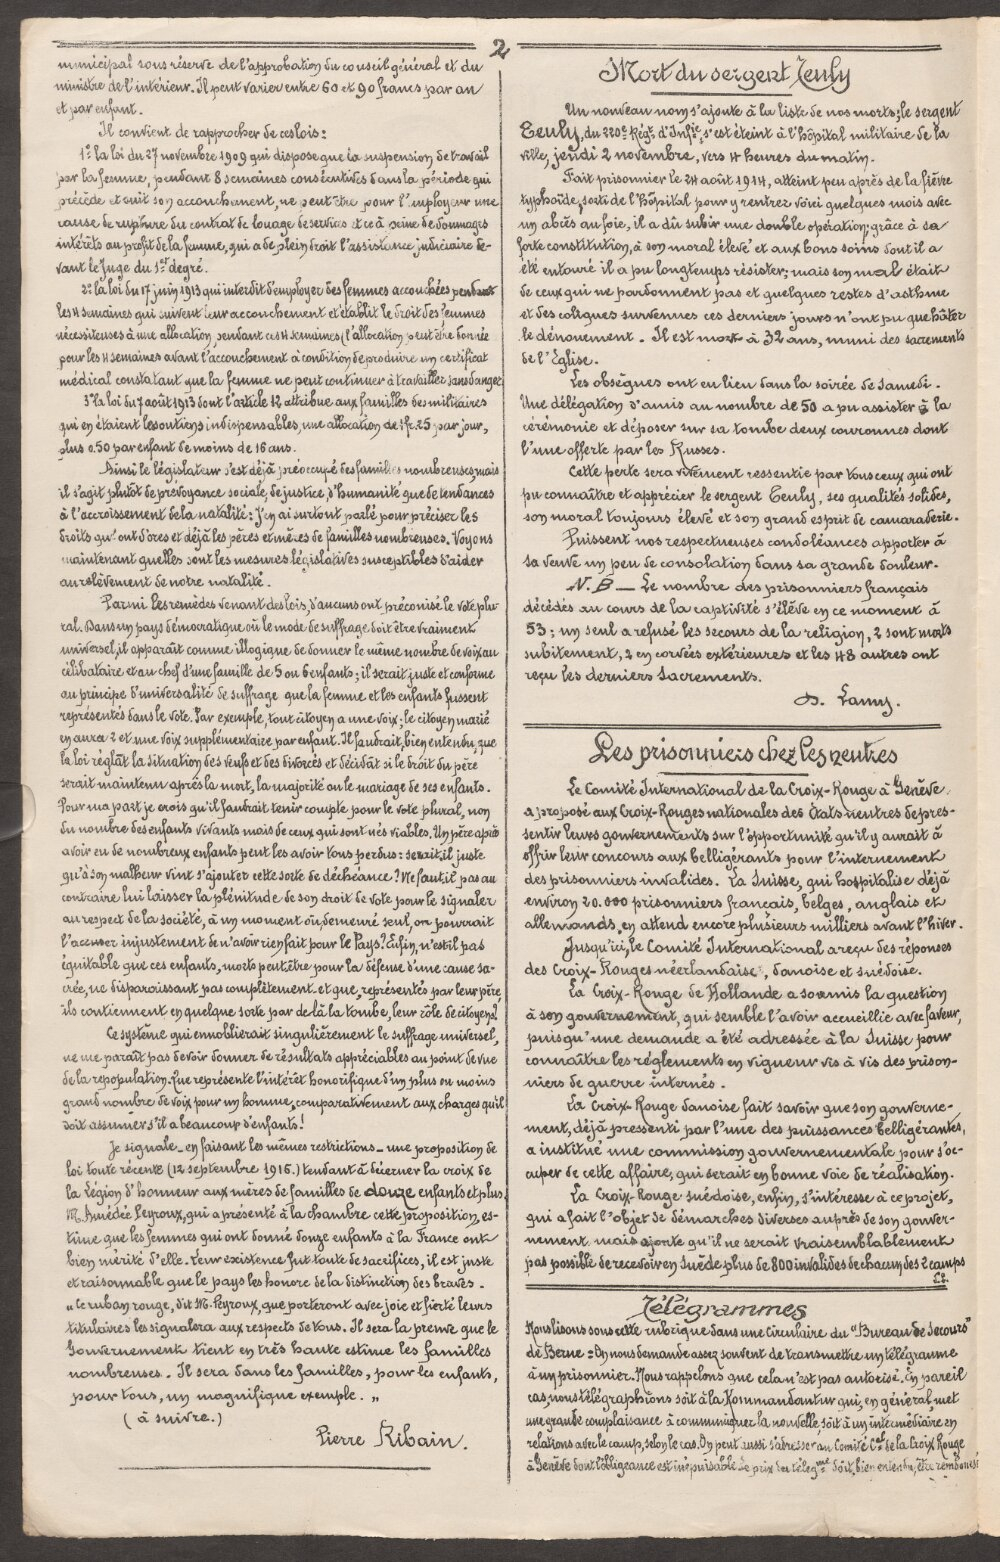 2
municipal sous réserve de l'approbation du conseil général et du
ministre de l'intérieur. Il peut varier entre 60 et 90 francs par an
et par enfant.
Il convient de rapprocher de ces lois:
1º la loi du 27 novembre 1909 qui dispose que la suspension de travail
par la femme, pendant 8 semaines consécutives dans la période qui
précède et suit son accouchement, ne peut être pour l'employeur une
cause de rupture du contrat de louage de services et ce à peine de dommages
intérêts au profit de la femme, qui a de plein droit l'assistance judiciaire de-
vant le Juge du 1er degré.
2º la loi du 17 juin 1913 qui interdit d'employer des femmes accouchées pendant
les 4 semaines qui suivent leur accouchement et établit le droit des femmes
nécessiteuses à une allocation pendant ces 4 semaines (l'allocation peut être donnée
pour les 4 semaines avant l'accouchement à condition de produire un certificat
médical constatant que la femme ne peut continuer à travailler sans danger
3º la loi du 7 août 1913 dont l'article 12 attribue aux familles des militaires
qui en étaient les soutiens indispensables, une allocation de 1fr.25 par jour,
plus 0.50 par enfant de moins de 16 ans.
Ainsi le législateur s'est déjà préoccupé des familles nombreuses, mais
il s'agit plutôt de prévoyance sociale, de justice, d'humanité que de tendances
à l'accroissement de la natalité: J'en ai surtout parlé pour préciser les
droits qu'ont d'ores et déjà les pères et mères de familles nombreuses. Voyons
maintenant quelles sont les mesures législatives susceptibles d'aider
au relèvement de notre natalité.
Parmi les remèdes venant des lois, d'aucuns ont préconisé le vote plu-
ral. Dans un pays démocratique où le mode de suffrage doit être vraiment
universel, il apparaît comme illogique de donner le même nombre de voix au
célibataire et au chef d'une famille de 5 ou 6 enfants; il serait juste et conforme
au principe d'universalité de suffrage que la femme et les enfants fussent
représentés dans le vote. Par exemple, tout citoyen a une voix; le citoyen marié
en aura 2 et une voix supplémentaire par enfant. Il faudrait, bien entendu, que
la loi réglât la situation des veufs et des divorcés et décidât si le droit du père
serait maintenu après la mort, la majorité ou le mariage de ses enfants.
Pour ma part je crois qu'il faudrait tenir compte pour le vote plural, non
du nombre des enfants vivants mais de ceux qui sont nés viables. Un père après
avoir eu de nombreux enfants peut les avoir tous perdus: serait-il juste
qu'à son malheur vint s'ajouter cette sorte de déchéance? Ne faut-il pas au
contraire lui laisser la plénitude de son droit de vote pour le signaler
au respect de la société, à un moment où, demeuré seul, on pourrait
l'accuser injustement de n'avoir rien fait pour le Pays? Enfin, n'est-il pas
équitable que ces enfants, morts peut-être pour la défense d'une cause sa-
crée, ne disparaissent pas complètement et que, représentés par leur père
ils continuent en quelque sorte par delà la tombe, leur rôle de citoyens?
Ce système qui ennoblirait singulièrement le suffrage universel,
ne me paraît pas devoir donner de résultats appréciables au point de vue
de la repopulation. Que représente l'intérêt honorifique d'un plus ou moins
grand nombre de voix pour un homme, comparativement aux charges qu'il
doit assumer s'il a beaucoup d'enfants!
Je signale - en faisant les mêmes restrictions - une proposition de
loi toute récente (12 septembre 1916.) tendant à décerner la croix de
la Légion d'honneur aux mères de familles de douze enfants et plus.
M. Amédée Peyroux, qui a présenté à la chambre cette proposition, es-
time que les femmes qui ont donné douze enfants à la France ont
bien mérité d'elle. Leur existence fut toute de sacrifices, il est juste
et raisonnable que le pays les honore de la distinction des braves.
" Ce ruban rouge, dit M. Peyroux, que porteront avec joie et fierté leurs
titulaires les signalera aux respects de tous. Il sera la preuve que le
Gouvernement tient en très haute estime les familles
nombreuses. Il sera dans les familles, pour les enfants,
pour tous, un magnifique exemple. "
(à suivre.)
Pierre Ribain.
Mort du sergent Teuly
Un nouveau nom s'ajoute à la liste de nos morts; le sergent
Teuly, du 220e Régt. d'Infie, s'est éteint à l'hôpital militaire de la
ville, jeudi 2 novembre, vers 4 heures du matin.
Fait prisonnier le 24 août 1914, atteint peu après de la fièvre
typhoïde, sorti de l'Hôpital pour y rentrer voici quelques mois avec
un abcès au foie, il a dû subir une double opération; grâce à sa
forte constitution, à son moral élevé et aux bons soins dont il a
été entouré il a pu longtemps résister; mais son mal était
de ceux qui ne pardonnent pas et quelques restes d'asthme
et des coliques survenues ces derniers jours n'ont pu que hâter
le dénouement. Il est mort à 32 ans, muni des sacrements
de l'Eglise.
Les obsèques ont eu lieu dans la soirée de Samedi.
Une délégation d'amis au nombre de 50 a pu assister à la
cérémonie et déposer sur sa tombe deux couronnes dont
l'une offerte par les Russes.
Cette perte sera vivement ressentie par tous ceux qui ont
pu connaître et apprécier le sergent Teuly, ses qualités solides,
son moral toujours élevé et son grand esprit de camaraderie.
Puissent nos respectueuses condoléances apporter à
sa veuve un peu de consolation dans sa grande douleur.
N.B — Le nombre des prisonniers français
décédés au cours de la captivité s'élève en ce moment à
53; un seul a refusé les secours de la religion, 2 sont morts
subitement, 2 en corvées extérieures et les 48 autres ont
reçu les derniers Sacrements.
Lamy.
Les prisonniers chez les neutres
Le Comité International de la Croix-Rouge à Genève,
a proposé aux Croix-Rouges nationales des Etats neutres de pres-
sentir leurs gouvernements sur l'opportunité qu'il y aurait à
offrir leur concours aux belligérants pour l'internement
des prisonniers invalides. La Suisse, qui hospitalise déjà
environ 20.000 prisonniers français, belges, anglais et
allemands, en attend encore plusieurs milliers avant l'hiver.
Jusqu'ici, le Comité International a reçu des réponses
des Croix-Rouges néerlandaise, danoise et suédoise.
La Croix-Rouge de Hollande a soumis la question
à son gouvernement, qui semble l'avoir accueillie avec faveur,
puisqu'une demande a été adressée à la Suisse pour
connaître les règlements en vigueur vis à vis des prison-
niers de guerre internés.
La Croix-Rouge danoise fait savoir que son gouverne-
ment, déjà pressenti par l'une des puissances belligérantes,
a institué une commission gouvernementale pour s'oc-
cuper de cette affaire, qui serait en bonne voie de réalisation.
La Croix-Rouge suédoise, enfin, s'intéresse à ce projet,
qui a fait l'objet de démarches diverses auprès de son gouver-
nement mais ajoute qu'il ne serait vraisemblablement
pas possible de recevoir en Suède plus de 800 invalides de chacun des 2 camps
Télégrammes
Nous lisons sous cette rubrique dans une circulaire du "Bureau de Secours"
de Berne: On nous demande assez souvent de transmettre un télégramme
à un prisonnier. Nous rappelons que cela n'est pas autorisé. En pareil
cas, nous télégraphions soit à la Kommandantur qui, en général, met
une grande complaisance à communiquer la nouvelle, soit à un intermédiaire en
relations avec le camp, selon le cas. On peut aussi s'adresser au Comité Cal de la Croix Rouge
à Genève dont l'obligeance est inépuisable. Le prix du télégme doit, bien entendu, être remboursé